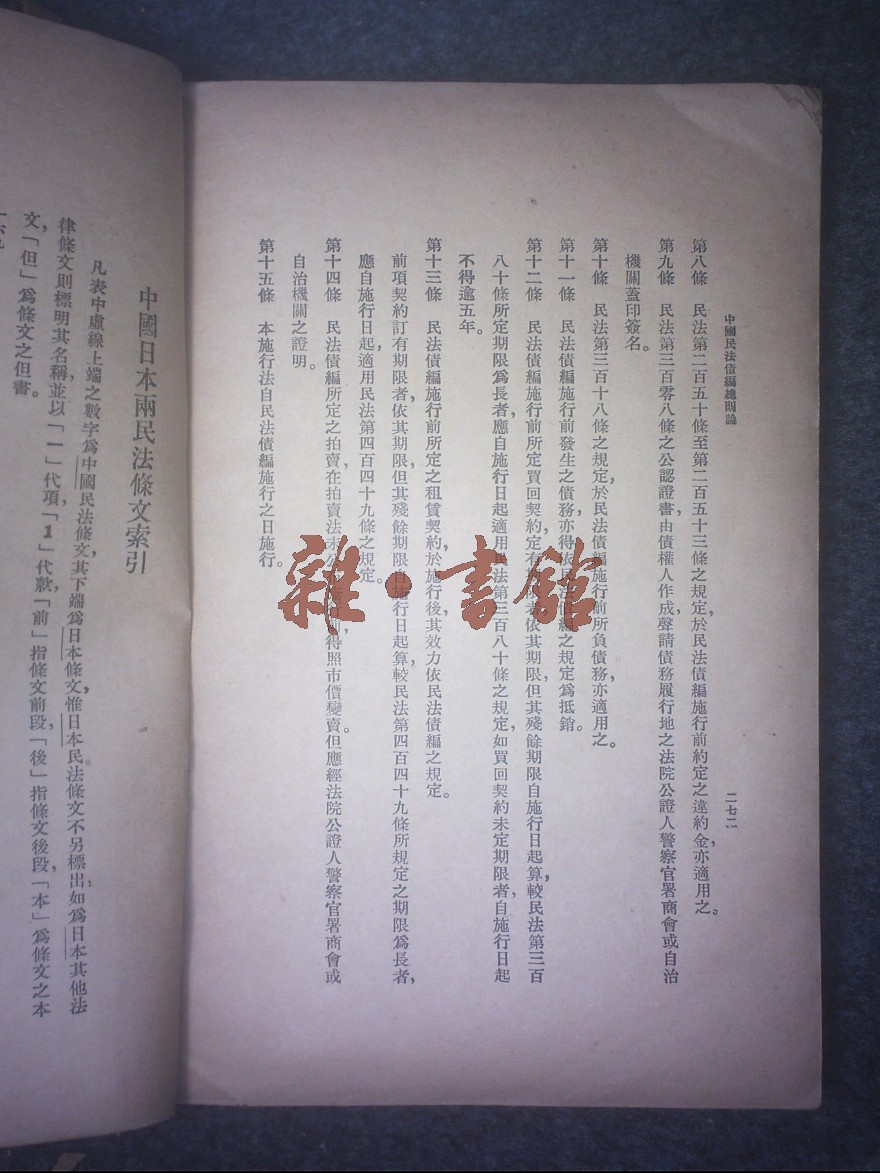 中國民法債編總則論
二七二
第八條　民法第二百五十條至第二百五十三條之規定，於民法債編施行前約定之違約金，亦適用之。
第九條　民法第三百零八條之公認證書，由債權人作成，聲請債務履行地之法院公證人警察官署商會或自治
機關蓋印簽名。
第十條　民法第三百十八條之規定，於民法債編施行前所負債務，亦適用之。
第十一條　民法債編施行前發生之債務，亦得依民法債編之規定爲抵銷。
第十二條　民法債編施行前所定買回契約定有期限者，依其期限，但其殘餘期限，自施行日起算，較民法第三百
八十條所定期限爲長者，應自施行日起，適用民法第三百八十條之規定，如買回契約未定期限者，自施行日起
不得逾五年。
第十三條　民法債編施行前所定之租賃契約，於施行後，其效力依民法債編之規定。
前項契約訂有期限者，依其期限，但其殘餘期限，自施行日起算，較民法第四百四十九條所規定之期限爲長者，
應自施行日起，適用民法第四百四十九條之規定。
第十四條　民法債編所定之拍賣，在拍賣法未公布施行前，得照市價變賣。但應經法院公證人警察官署商會或
自治機關之證明。
第十五條　本施行法自民法債編施行之日施行。
中國日本兩民法條文索引
凡表中虛線上端之數字爲中國民法條文，其下端爲日本條文，惟日本民法條文不另標出，如爲日本其他法
律條文，則標明其名稱，並以「一」代項，「1」代款，「前」指條文前段，「後」指條文後段，「本」爲條文之本
文，「但」爲條文之但書。
雜·書館